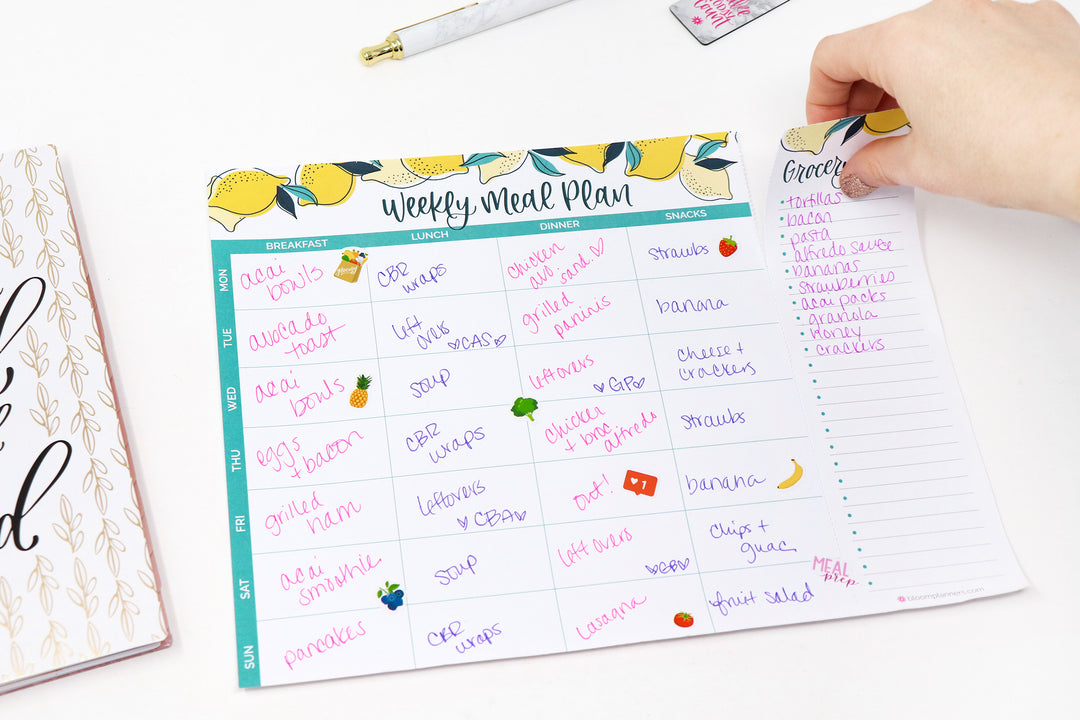 Weekly Meal Plan
BREAKFAST
LUNCH
DINNER
SNACKS
MON
acai
bowls
CBR
wraps
chicken
avo.
sand.
strawbs
TUE
avocado
toast
left
overs
CAS
grilled
paninis
banana
WED
acai
bowls
soup
leftovers
GP
cheese +
crackers
THU
eggs
+ bacon
CBR
wraps
chicken
+ broc
alfredo
strawbs
FRI
grilled
ham
leftovers
CBA
out!
1
banana
SAT
acai
smoothie
soup
left overs
chips +
guac
SUN
pancakes
CBR
wraps
lasagna
fruit salad
MEAL
prep
Grocery
tortillas
bacon
pasta
alfredo sauce
bananas
strawberries
acai packs
granola
honey
crackers
bloomplanners.com
count